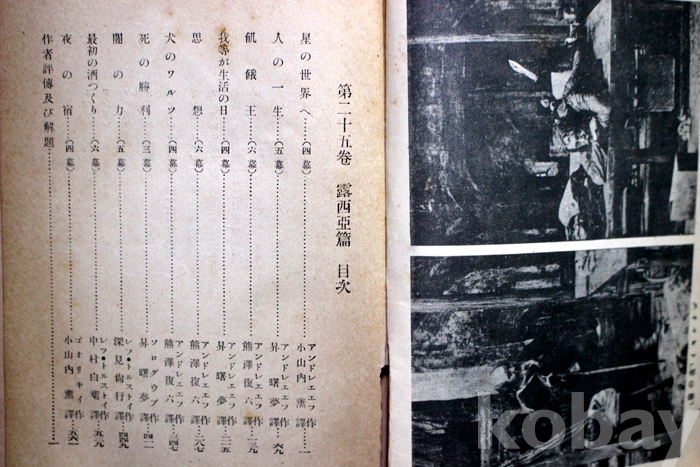 第二十五卷 露西亞篇 目次
星の世界へ(四幕)
アンドレエエフ作
小山內薰譯…一
人の一生(五幕)
アンドレエエフ作
昇曙夢譯…六九
飢餓王(六幕)
アンドレエエフ作
熊澤復六譯…一三九
我等が生活の日(四幕)
アンドレエエフ作
昇曙夢譯…二二五
思想(六幕)
アンドレエエフ作
熊澤復六譯
犬のワルツ(四幕)
アンドレエエフ作
熊澤復六譯…三四七
死の勝利(三幕)
ソログウブ作
昇曙夢譯…四二一
闇の力(五幕)
レフ・トルストイ作
深見尙行譯…四四九
最初の酒つくり(六幕)
レフ・トルストイ作
中村白葉譯…五三九
夜の宿(四幕)
ゴオリキイ作
小山內薰譯…五六一
作者評傳及び解題…一
kobay